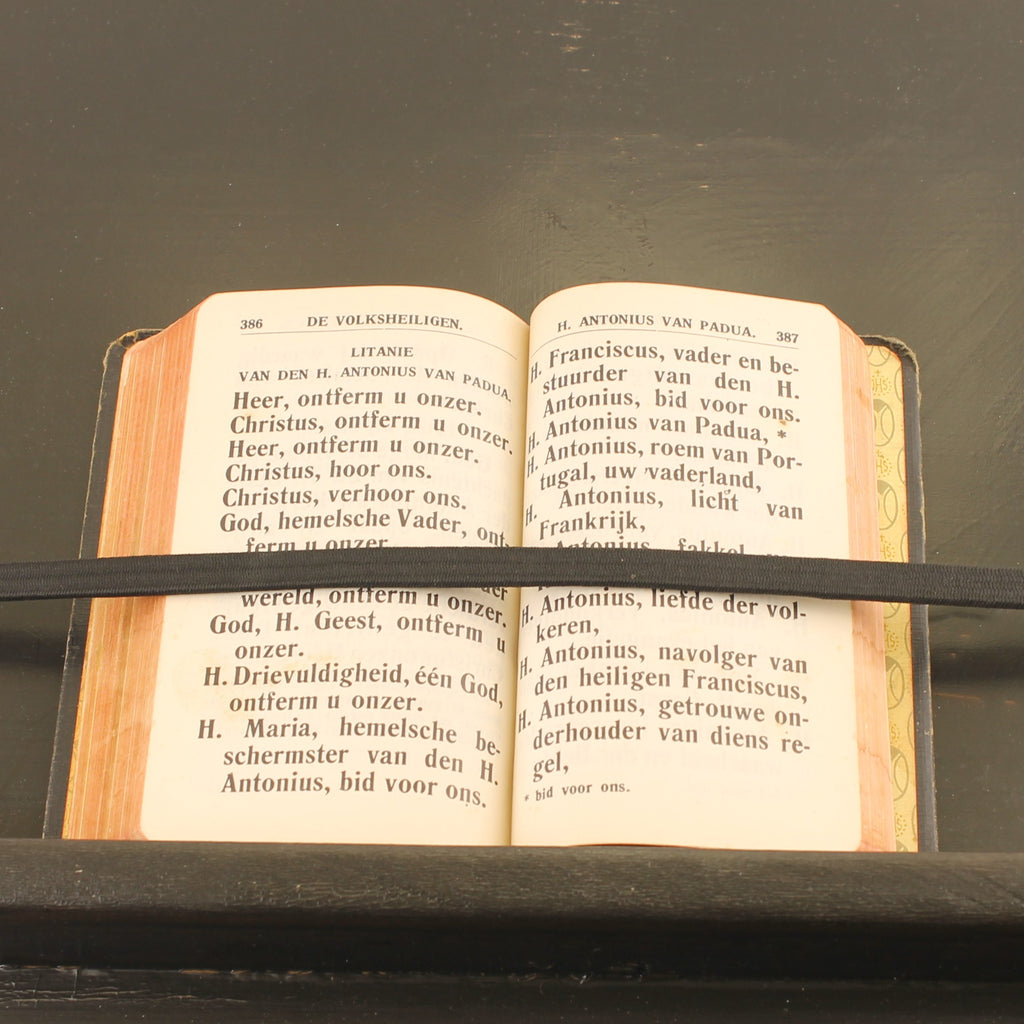 386 DE VOLKSHEILIGEN.
LITANIE
VAN DEN H. ANTONIUS VAN PADUA.
Heer, ontferm u onzer.
Christus, ontferm u onzer.
Heer, ontferm u onzer.
Christus, hoor ons.
Christus, verhoor ons.
God, hemelsche Vader, ont-
ferm u onzer.
wereld, ontferm u onzer.
God, H. Geest, ontferm u
onzer.
H. Drievuldigheid, één God,
ontferm u onzer.
H. Maria, hemelsche be-
schermster van den H.
Antonius, bid voor ons.
H. ANTONIUS VAN PADUA. 387
H. Franciscus, vader en be-
stuurder van den H.
Antonius, bid voor ons.
H. Antonius van Padua, *
H. Antonius, roem van Por-
tugal, uw vaderland,
H. Antonius, licht van
Frankrijk,
Antonius, fakkel
H. Antonius, liefde der vol-
keren,
H. Antonius, navolger van
den heiligen Franciscus,
H. Antonius, getrouwe on-
derhouder van diens re-
gel,
* bid voor ons.